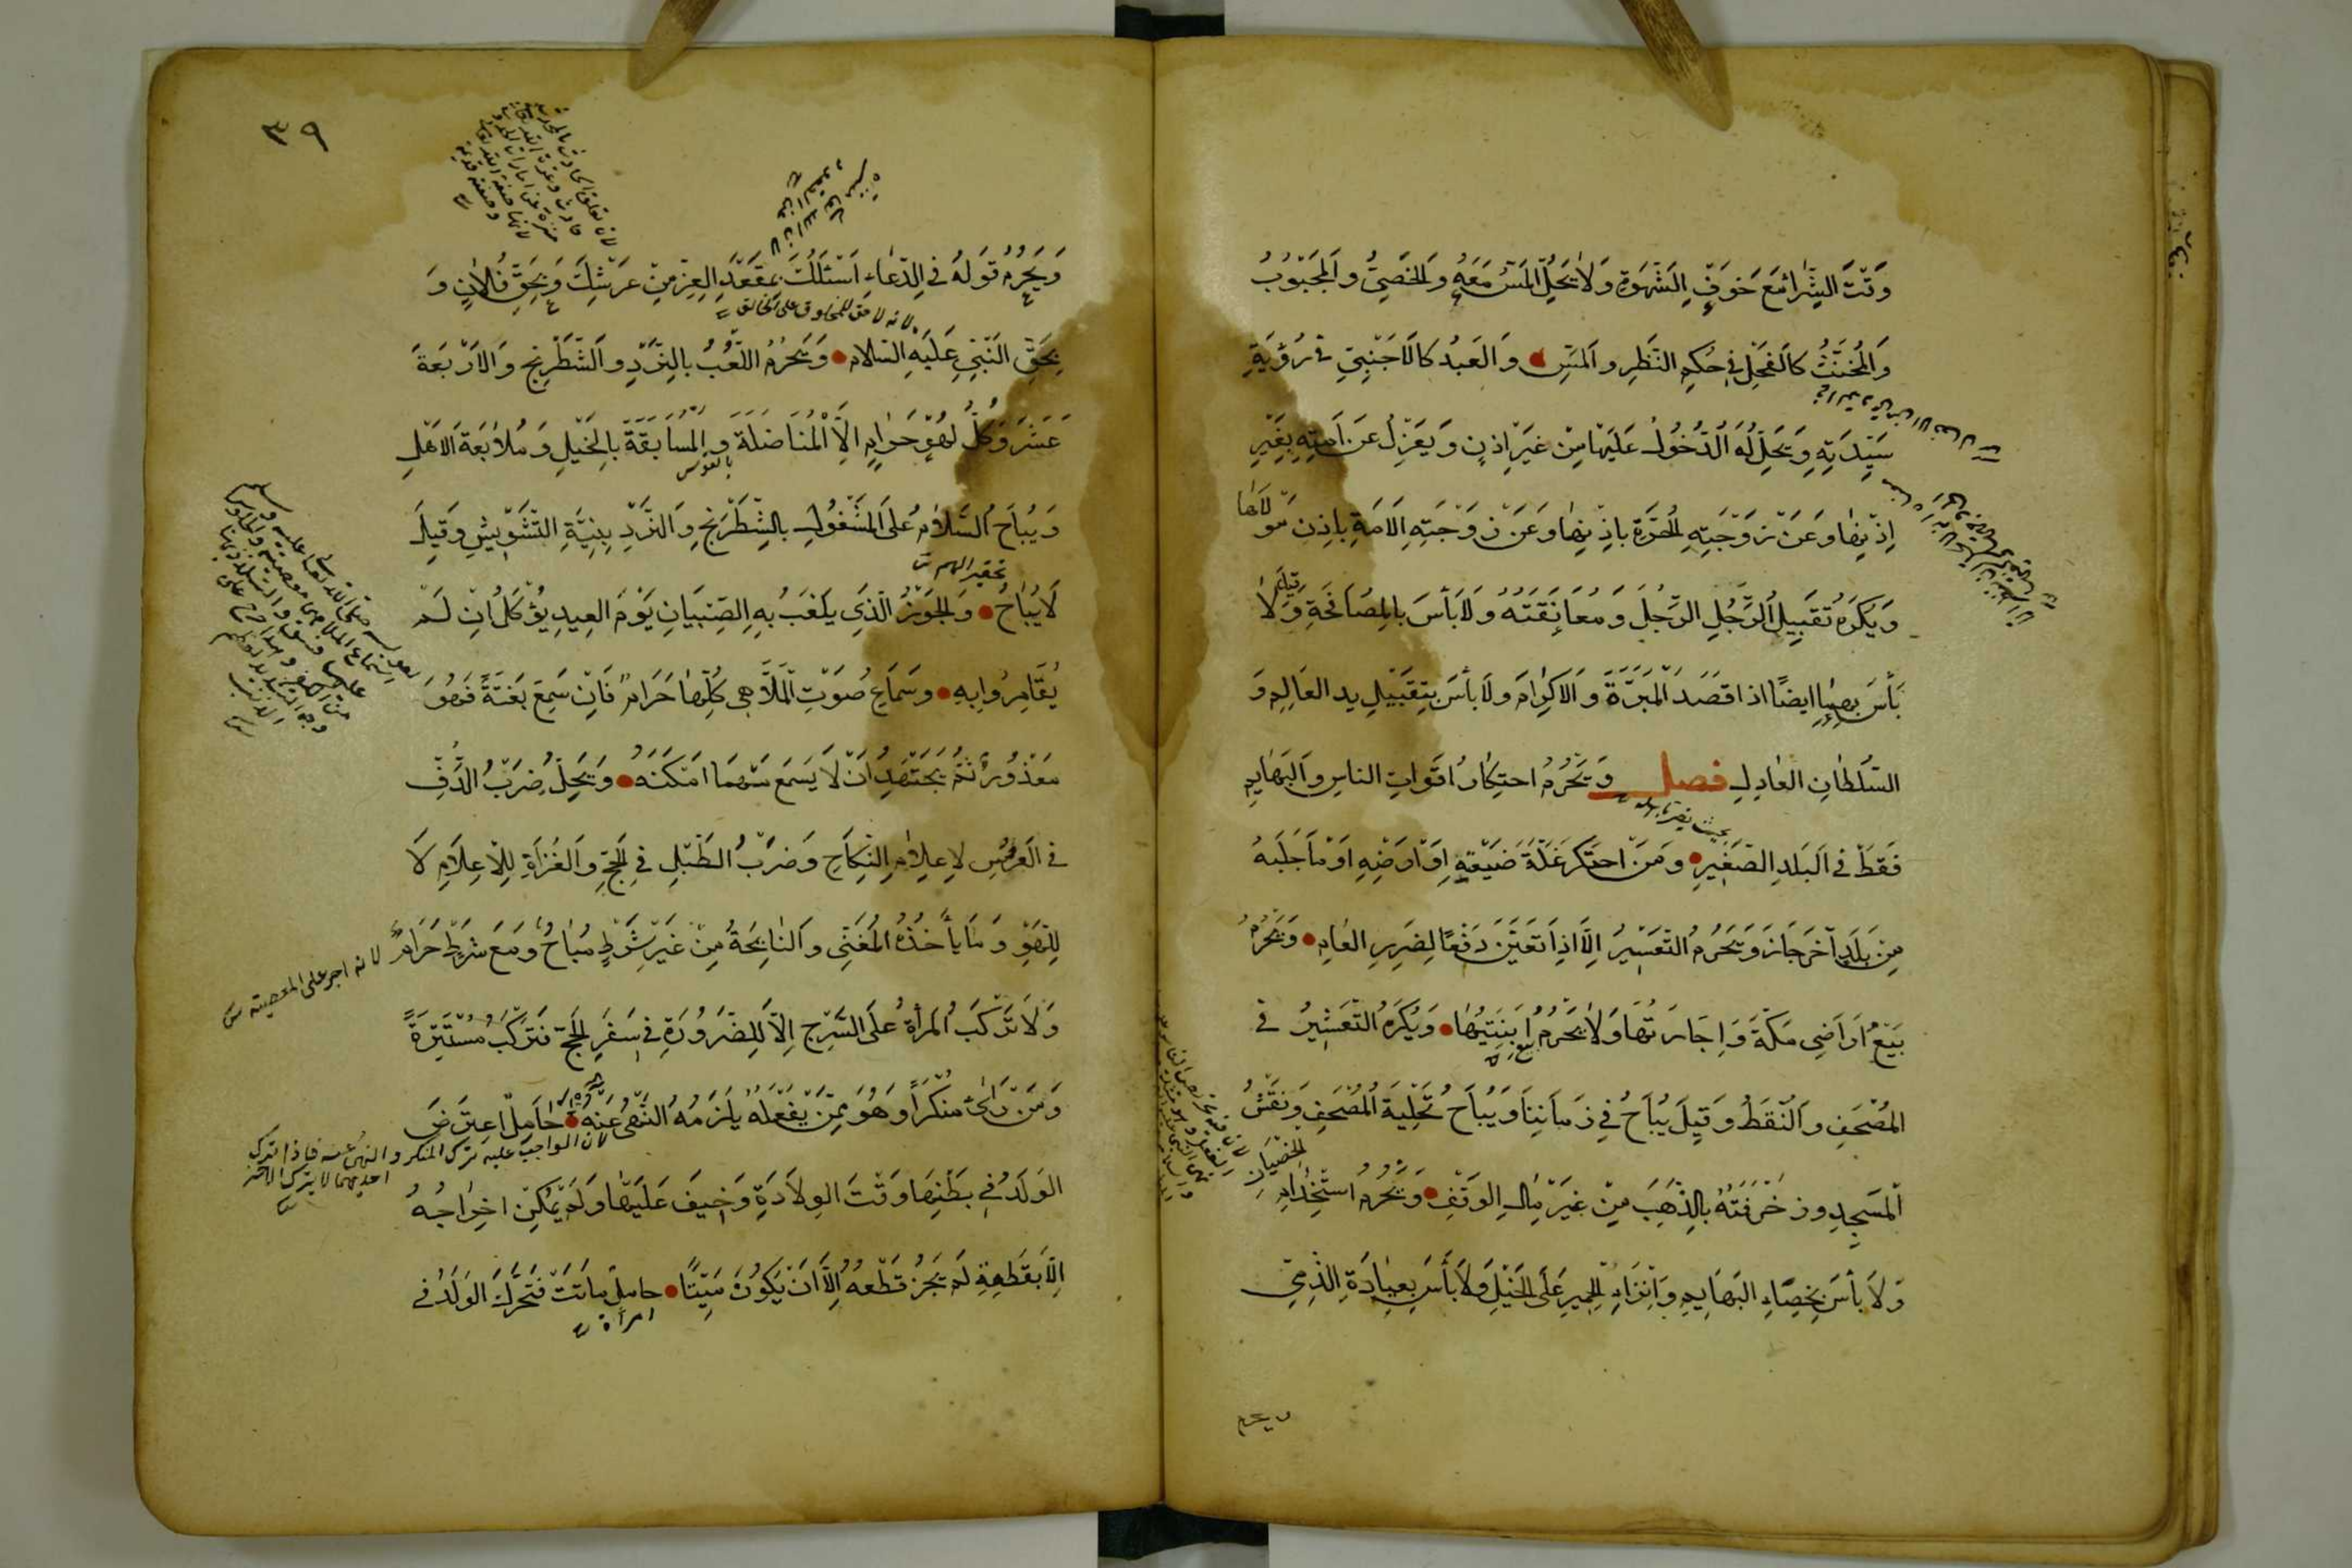 وَقْتَ الشِّرَاءِ مَعَ خَوْفِ الشَّهْوَةِ وَلَا يَحِلُّ الْمَسُّ مَعَهُ وَالْخَصِيُّ وَالْمَجْبُوبُ
وَالْمُخَنَّثُ كَالْفَحْلِ فِي حُكْمِ النَّظَرِ وَالْمَسِّ وَالْعَبْدُ كَالْأَجْنَبِيِّ فِي رُؤْيَةِ
سَيِّدَتِهِ وَيَحِلُّ لَهُ الدُّخُولُ عَلَيْهَا مِنْ غَيْرِ إِذْنٍ وَيَعْزِلُ عَنْ أَمَتِهِ بِغَيْرِ
إِذْنِهَا وَعَنْ زَوْجَتِهِ الْحُرَّةِ بِإِذْنِهَا وَعَنْ زَوْجَتِهِ الْأَمَةِ بِإِذْنِ مَوْلَاهَا
وَيُكْرَهُ تَقْبِيلُ الرَّجُلِ الرَّجُلَ وَمُعَانَقَتُهُ وَلَا بَأْسَ بِالْمُصَافَحَةِ وَقِيلَ لَا
بَأْسَ بِهِمَا أَيْضًا إِذَا قَصَدَ الْمَبَرَّةَ وَالْإِكْرَامَ وَلَا بَأْسَ بِتَقْبِيلِ يَدِ الْعَالِمِ وَ
السُّلْطَانِ الْعَادِلِ فصل وَيَحْرُمُ احْتِكَارُ أَقْوَاتِ النَّاسِ وَالْبَهَائِمِ
فَقَطْ فِي الْبَلَدِ الصَّغِيرِ وَمَنِ احْتَكَرَ غَلَّةَ ضَيْعَتِهِ أَوْ أَرْضِهِ أَوْ مَا جَلَبَهُ
مِنْ بَلَدٍ آخَرَ جَازَ وَيَحْرُمُ التَّسْعِيرُ إِلَّا إِذَا تَعَيَّنَ دَفْعًا لِضَرَرِ الْعَامِ وَيَحْرُمُ
بَيْعُ أَرَاضِي مَكَّةَ وَإِجَارَتُهَا وَلَا يَحْرُمُ بيع أَبْنِيَتِهَا وَيُكْرَهُ التَّعْشِيرُ فِي
الْمُصْحَفِ وَالنُّقَطُ وَقِيلَ يُبَاحُ فِي زَمَانِنَا وَيُبَاحُ تَحْلِيَةُ الْمُصْحَفِ وَنَقْشُ
الْمَسْجِدِ وَزَخْرَفَتُهُ بِالذَّهَبِ مِنْ غَيْرِ مَالِ الْوَقْفِ وَيَحْرُمُ اسْتِخْدَامُ الْخِصْيَانِ
وَلَا بَأْسَ بِخِصَاءِ الْبَهَائِمِ وَإِنْزَاءِ الْحَمِيرِ عَلَى الْخَيْلِ وَلَا بَأْسَ بِعِيَادَةِ الذِّمِّيِّ
ويحرم
٣٩
وَيَحْرُمُ قَوْلُهُ فِي الدُّعَاءِ أَسْئَلُكَ بِمَقْعَدِ الْعِزِّ مِنْ عَرْشِكَ وَبِحَقِّ فُلَانٍ وَ
لانه لا حق للمخلوق على الخالق
بِحَقِّ النَّبِيِّ عَلَيْهِ السَّلَام وَيَحْرُمُ اللَّعْبُ بِالنَّرْدِ وَالشَّطْرَنْجِ وَالْأَرْبَعَةَ
عَشَرَ وَكُلُّ لَهْوٍ حَرَامٌ إِلَّا الْمُنَاضَلَةَ وَالْمُسَابَقَةَ بِالْخَيْلِ وَمُلَاعَبَةَ الْأَهْلِ
بالقوس
وَيُبَاحُ السَّلَامُ عَلَى الْمَشْغُولِ بِالشَّطْرَنْجِ وَالنَّرْدِ بِنِيَّةِ التَّشْوِيشِ وَقِيلَ
تحقيرا لهم
لَا يُبَاحُ وَالْجَوْزُ الَّذِي يَلْعَبُ بِهِ الصِّبْيَانُ يَوْمَ الْعِيدِ يُؤْكَلُ إِنْ لَمْ
يُقَامِرُوا بِهِ وَسَمَاعُ صَوْتِ الْمَلَاهِي كُلِّهَا حَرَامٌ فَإِنْ سَمِعَ بَغْتَةً فَهُوَ
مَعْذُورٌ ثُمَّ يَجْتَهِدُ أَنْ لَا يَسْمَعَ مَهْمَا أَمْكَنَهُ وَيَحِلُّ ضَرْبُ الدُّفِّ
فِي الْعُرْسِ لِإِعْلَامِ النِّكَاحِ وَضَرْبُ الطَّبْلِ فِي الْحَجِّ وَالْغُزَاةِ لِلْإِعْلَامِ لَا
لِلَّهْوِ وَمَا يَأْخُذُهُ الْمُغَنِّي وَالنَّائِحَةُ مِنْ غَيْرِ شَرْطٍ مُبَاحٌ وَمَعَ شَرْطٍ حَرَامٌ لانه اجر على المعصية
وَلَا تَرْكَبُ الْمَرْأَةُ عَلَى السَّرْجِ إِلَّا لِلضَّرُورَةِ فِي سَفَرِ الْحَجِّ فَتَرْكَبُ مُسْتَتِرَةً
وَمَنْ رَأَى مُنْكَرًا وَهُوَ مِمَّنْ يَفْعَلُهُ يَلْزَمُهُ النَّهْيُ عَنْهُ حَامِلٌ اعْتَرَضَ
لان الواجب عليه ترك المنكر والنهى عنه فاذا ترك
احديهما لا يترك الاخر
الْوَلَدُ فِي بَطْنِهَا وَقْتَ الْوِلَادَةِ وَخِيفَ عَلَيْهَا وَلَمْ يُمْكِنْ إِخْرَاجُهُ
إِلَّا بِقَطْعِهِ لَمْ يَجُزْ قَطْعُهُ إِلَّا أَنْ يَكُونَ مَيِّتًا حَامِلٌ مَاتَتْ فَتَحَرَّكَ الْوَلَدُ فِي
امرأة